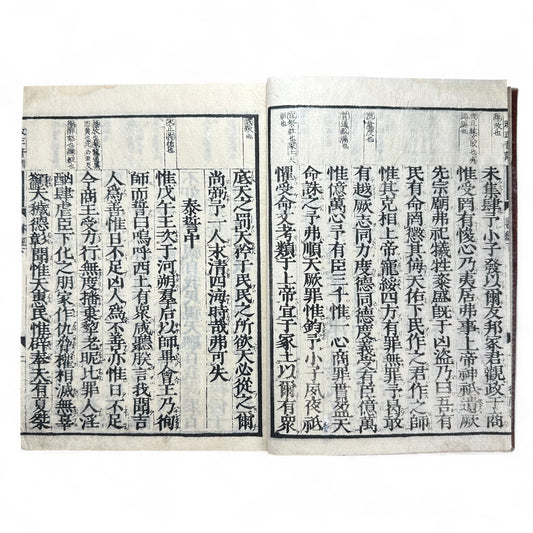 未集肆予小子發以爾友邦冢君觀政于商
惟受罔有悛心乃夷居弗事上帝神祇遺厥
先宗廟弗祀犧牲粢盛既于凶盜乃曰吾有
民有命罔懲其侮天佑下民作之君作之師
惟其克相上帝寵綏四方有罪無罪予曷敢
有越厥志同力度德同德度義受有臣億萬
惟億萬心予有臣三千惟一心商罪貫盈天
命誅之予弗順天厥罪惟鈞予小子夙夜祗
懼受命文考類于上帝宜于冢土以爾有眾
底天之罰天矜于民民之所欲天必從之爾
尚弼予一人永清四海時哉弗可失
泰誓中
惟戊午王次于河朔羣后以師畢會王乃徇
師而誓曰嗚呼西土有眾咸聽朕言我聞吉
人爲善惟日不足凶人爲不善亦惟日不足
今商王受力行無度播棄犂老昵比罪人淫
酗肆虐臣下化之朋家作仇脅權相滅無辜
籲天穢德彰聞惟天惠民惟辟奉天有夏桀